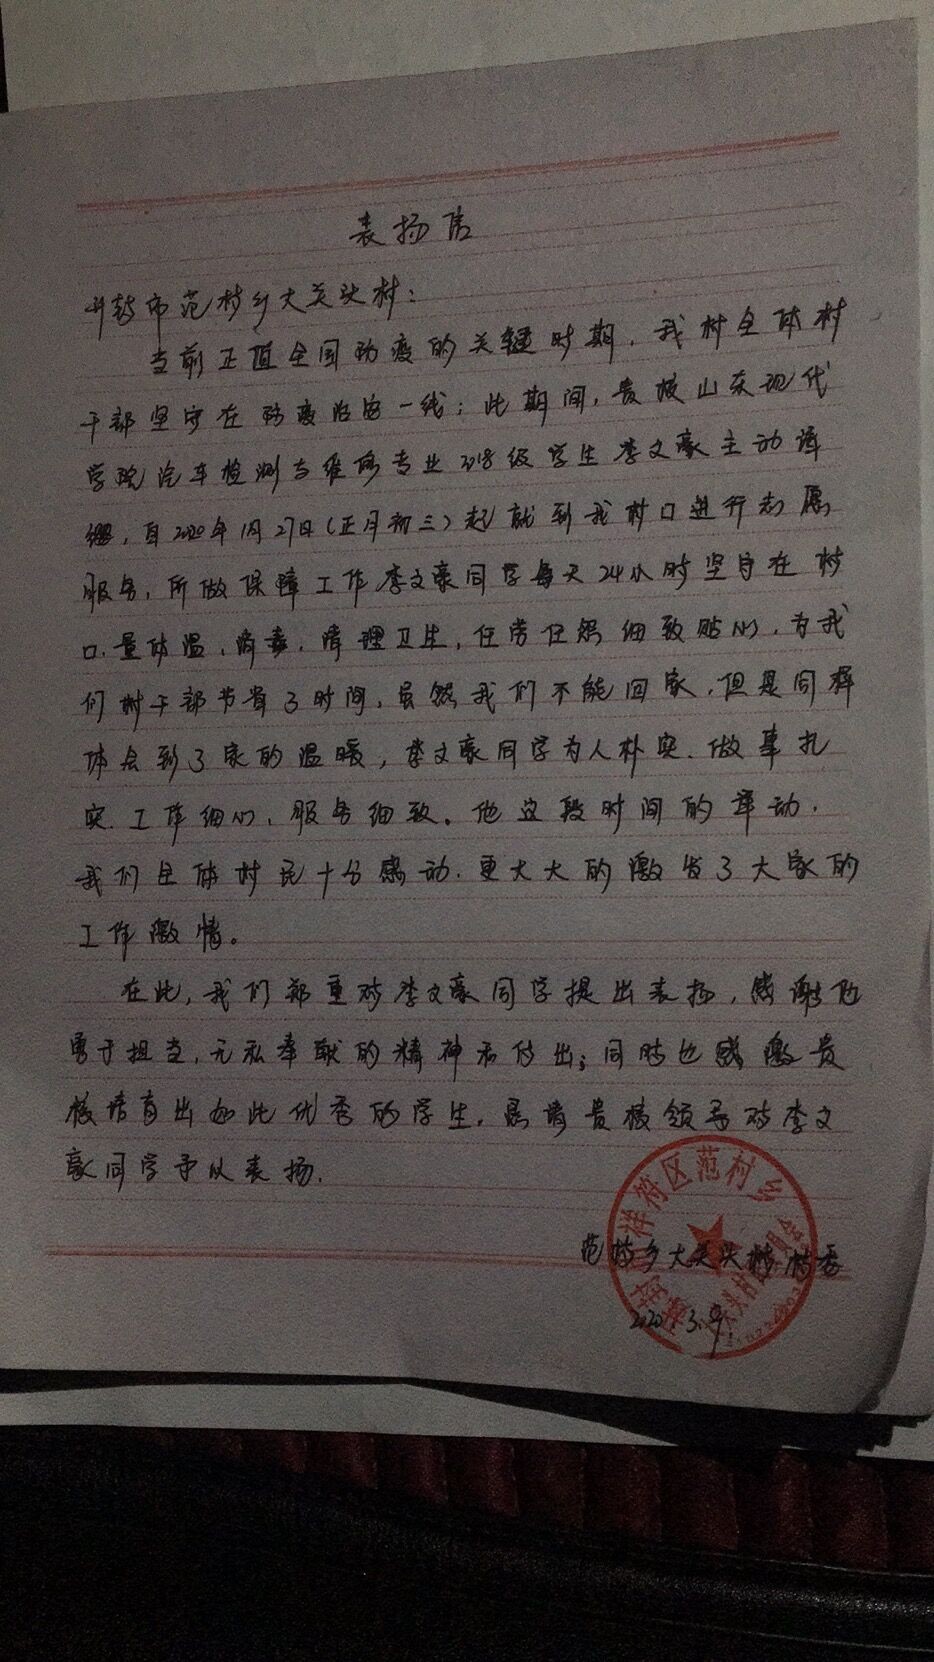 表扬信
开封市范村乡大关头村：
当前正值全国防疫的关键时期，我村全体村
干部坚守在防疫防治一线；此期间，贵校山东现代
学院汽车检测与维修专业2018级学生李文豪主动请
缨，自2020年1月27日(正月初三)起就到我村口进行志愿
服务，所做保障工作李文豪同学每天24小时坚守在村
口.量体温、消毒、清理卫生，任劳任怨细致贴心，为我
们村干部节省了时间，虽然我们不能回家，但是同样
体会到了家的温暖，李文豪同学为人朴实、做事扎
实、工作细心、服务细致。他这段时间的举动，
我们全体村民十分感动.更大大的激发了大家的
工作激情。
在此，我们郑重对李文豪同学提出表扬，感谢他
勇于担当，无私奉献的精神和付出；同时也感激贵
校培育出如此优秀的学生，恳请贵校领导对李文
豪同学予以表扬.
范村乡大关头村村委
2020.3.9.
祥符区范村乡